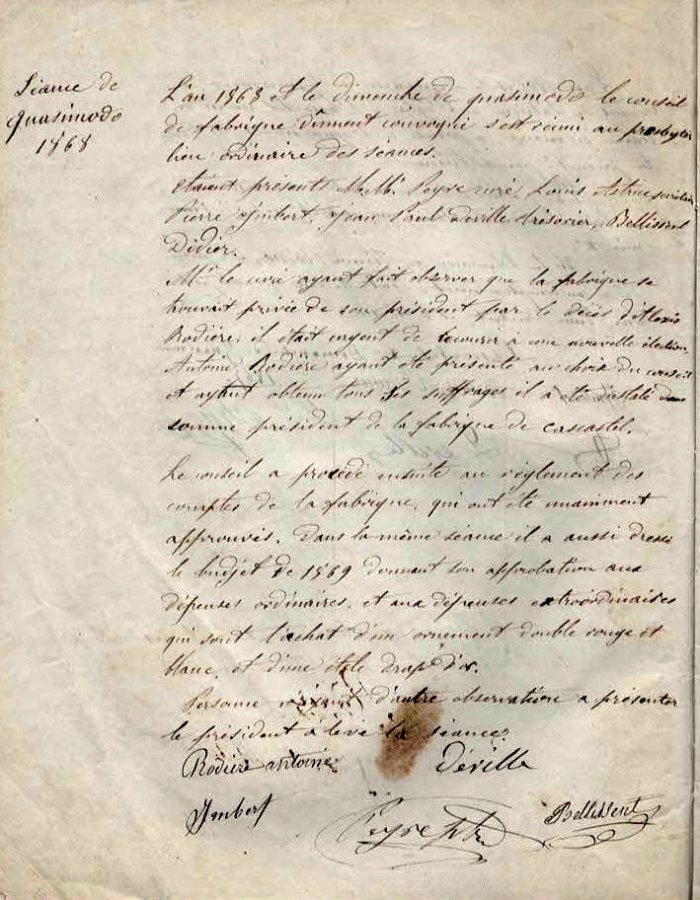 Séance de
quasimodo
1868
L'an 1868 et le dimanche de quasimodo le conseil
de fabrique dûment convoqué s'est réuni au presbytère
lieu ordinaire des séances.
étaient présents M.M. Peyre curé, Louis Astruc
Pierre Imbert, Jean Paul Deville trésorier, Bellissent
Didier.
Mr le curé ayant fait observer que la fabrique se
trouvait privée de son président par le décès d'Alexis
Rodière, il était urgent de recourir à une nouvelle élection
Antoine Rodière ayant été présenté au choix du conseil
et ayant obtenu tous les suffrages il a été installé
comme président de la fabrique de cascastel.
Le conseil a procédé ensuite au règlement des
comptes de la fabrique, qui ont été unamiment
approuvés. Dans la même séance il a aussi dressé
le budjet de 1869 donnant son approbation aux
dépenses ordinaires, et aux dépenses extraordinaires
qui sont l'achat d'un ornement double rouge et
blanc, et d'une étole drap d'or.
Personne n'ayant d'autre observation a présenter
le président a levé la séance.
Rodière antoine Déville
Imbert Peyre ptre Bellissent